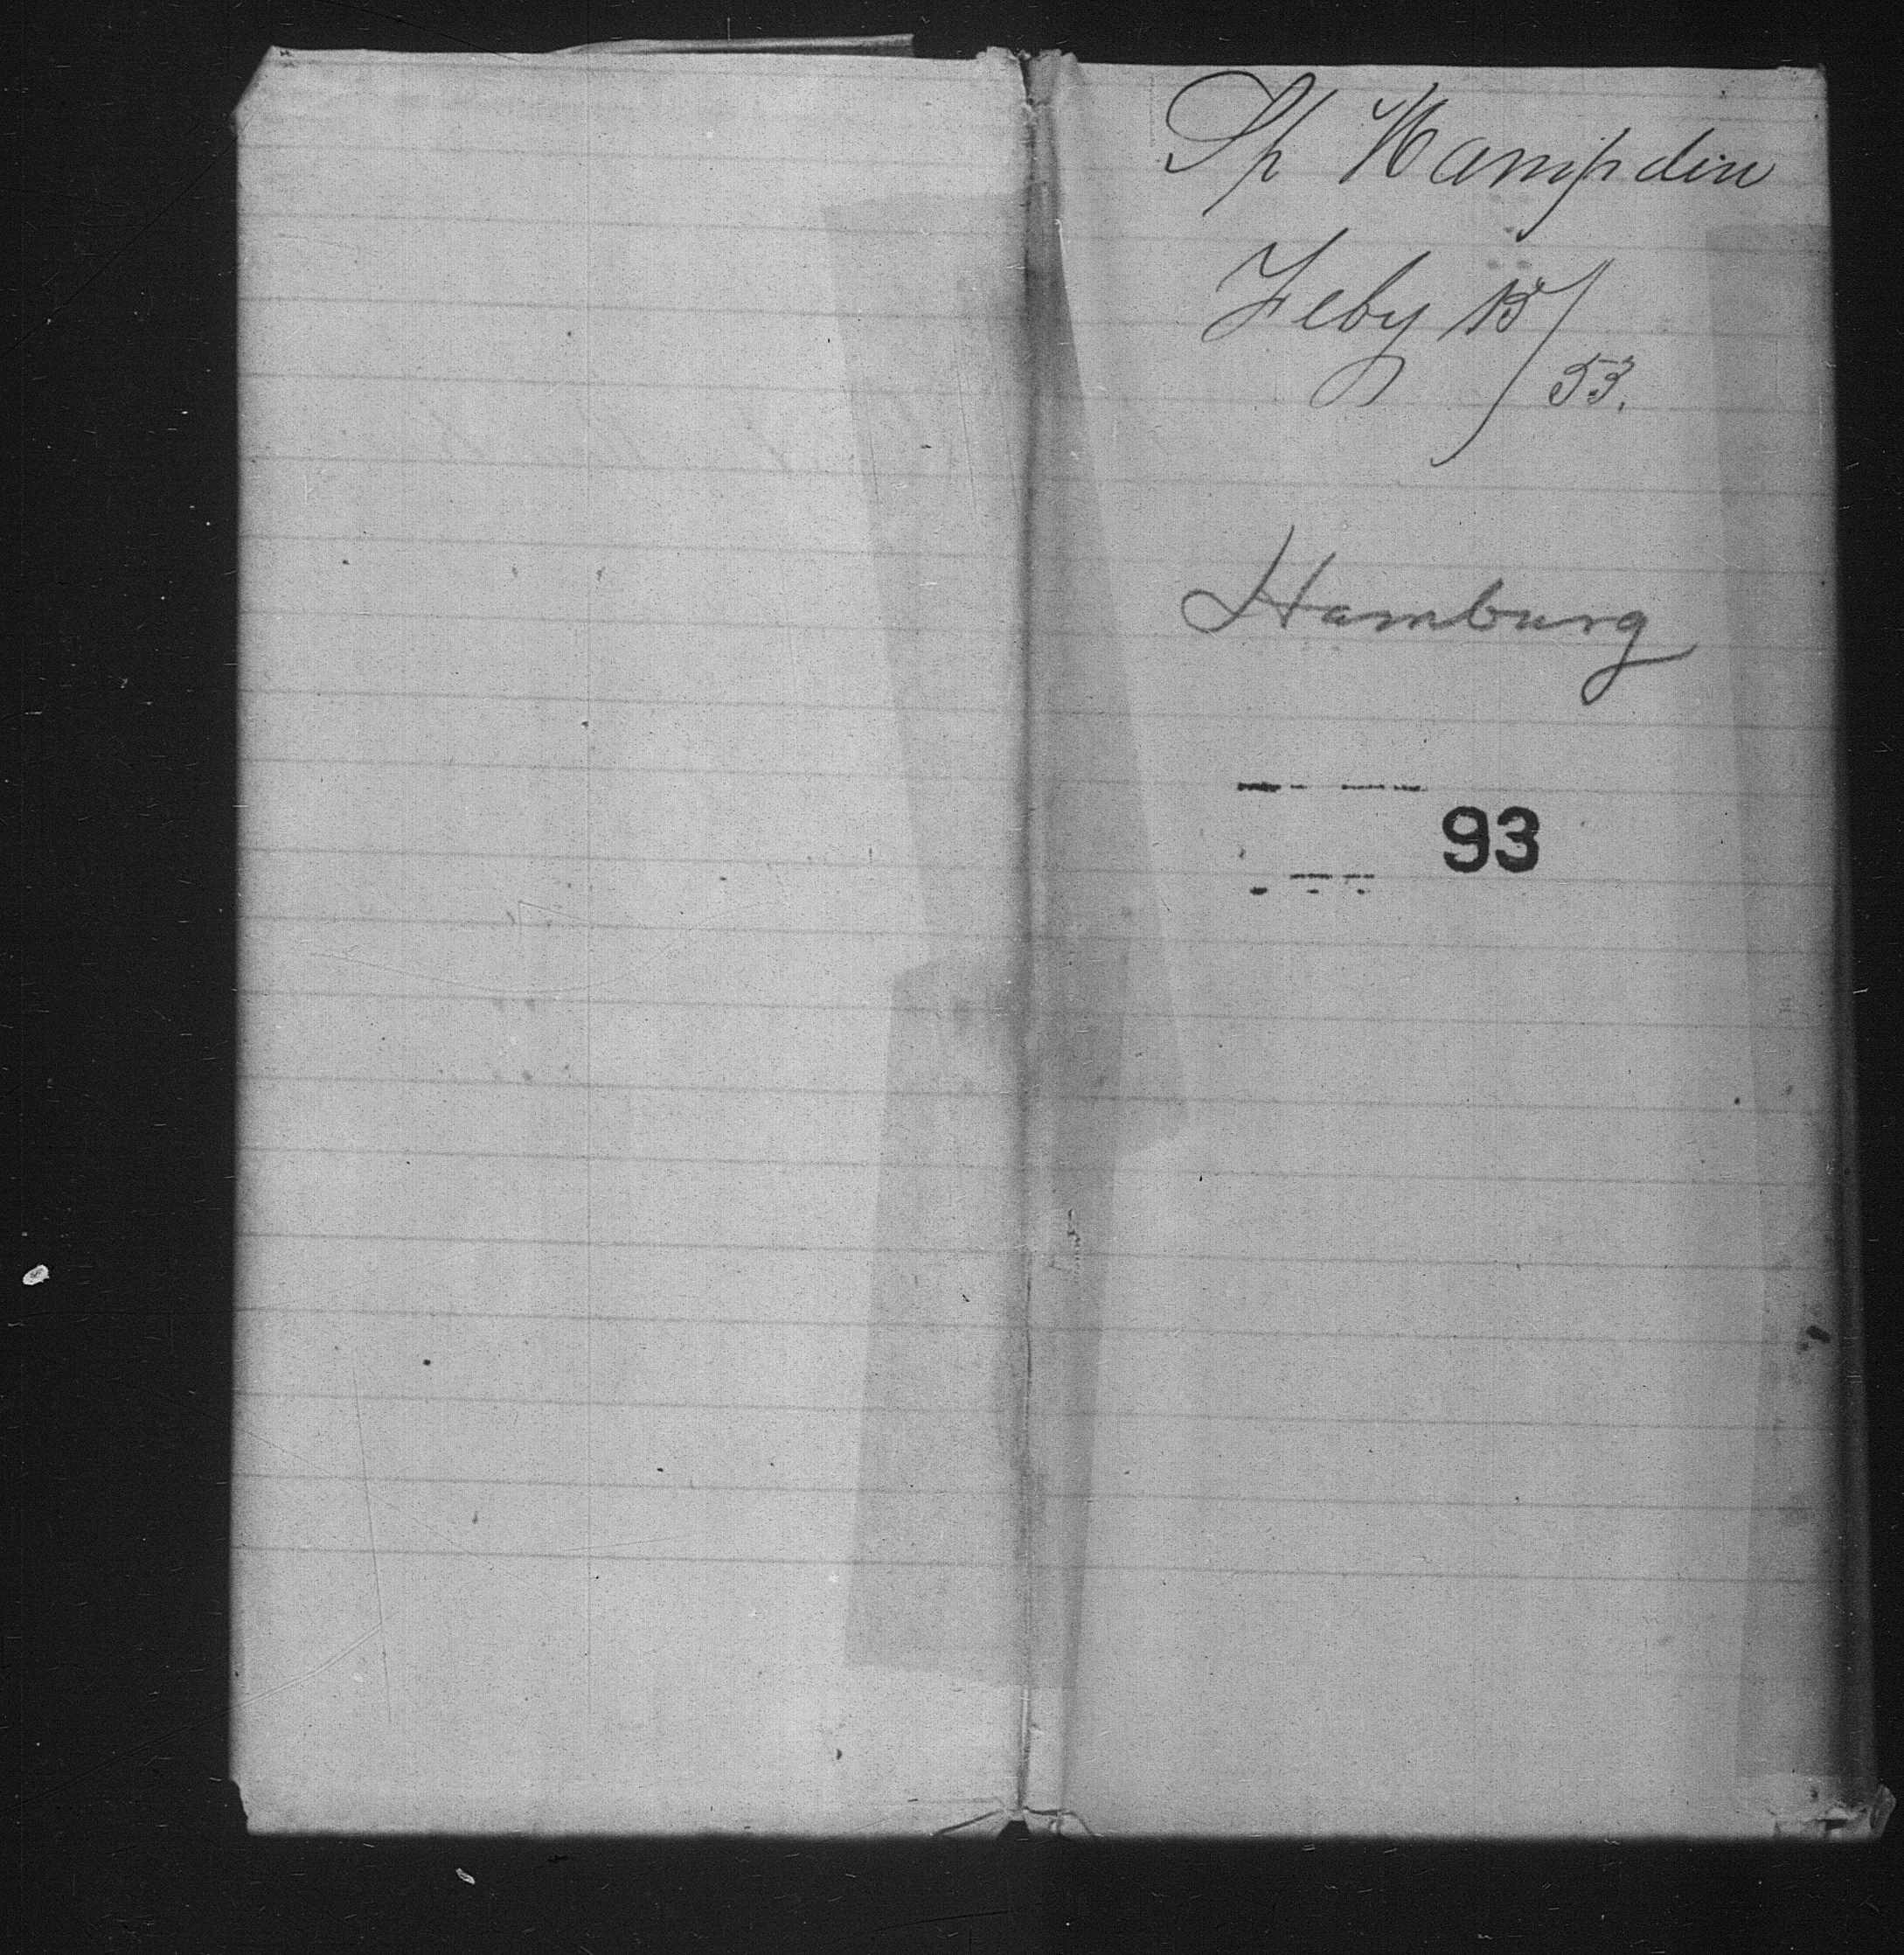 Sh Hampden
Feby 15/
53.
Hamburg
93